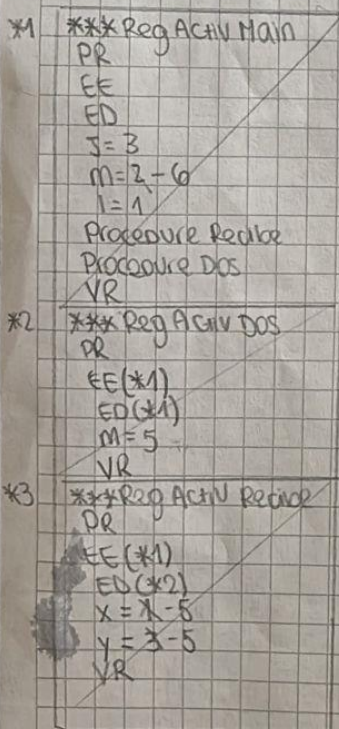 *1 ***Reg Activ Main
PR
EE
ED
J=3
m=2-6
l=1
Procedure Recibe
Procedure Dos
VR
*2 ***Reg Activ DOS
PR
EE(*1)
ED(*1)
m=5
VR
*3 ***Reg Activ Recibe
PR
EE(*1)
ED(*2)
x=1-5
y=3-5
VR